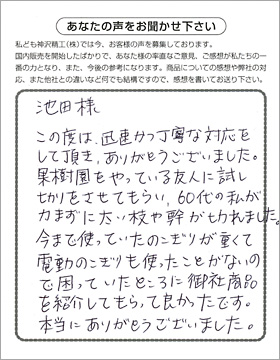 あなたの声をお聞かせ下さい
私ども神沢精工(株)では今、お客様の声を募集しております。
国内販売を開始したばかりで、あなた様の率直なご意見、ご感想が私たちの一
番の力となり、また、今後の参考になります。商品についての感想や弊社の対
応、また他社との違いなど何でも結構ですので、感想を書いてお送り下さい。
池田様
この度は、迅速かつ丁寧な対応を
して頂き、ありがとうございました。
果樹園をやっている友人に試し
切りをさせてもらい、60代の私が
力まずに太い枝や幹が切れました。
今まで使っていたのこぎりが重くて
電動のこぎりも使ったことがないの
で困っていたところに御社商品
を紹介してもらって良かったです。
本当にありがとうございました。